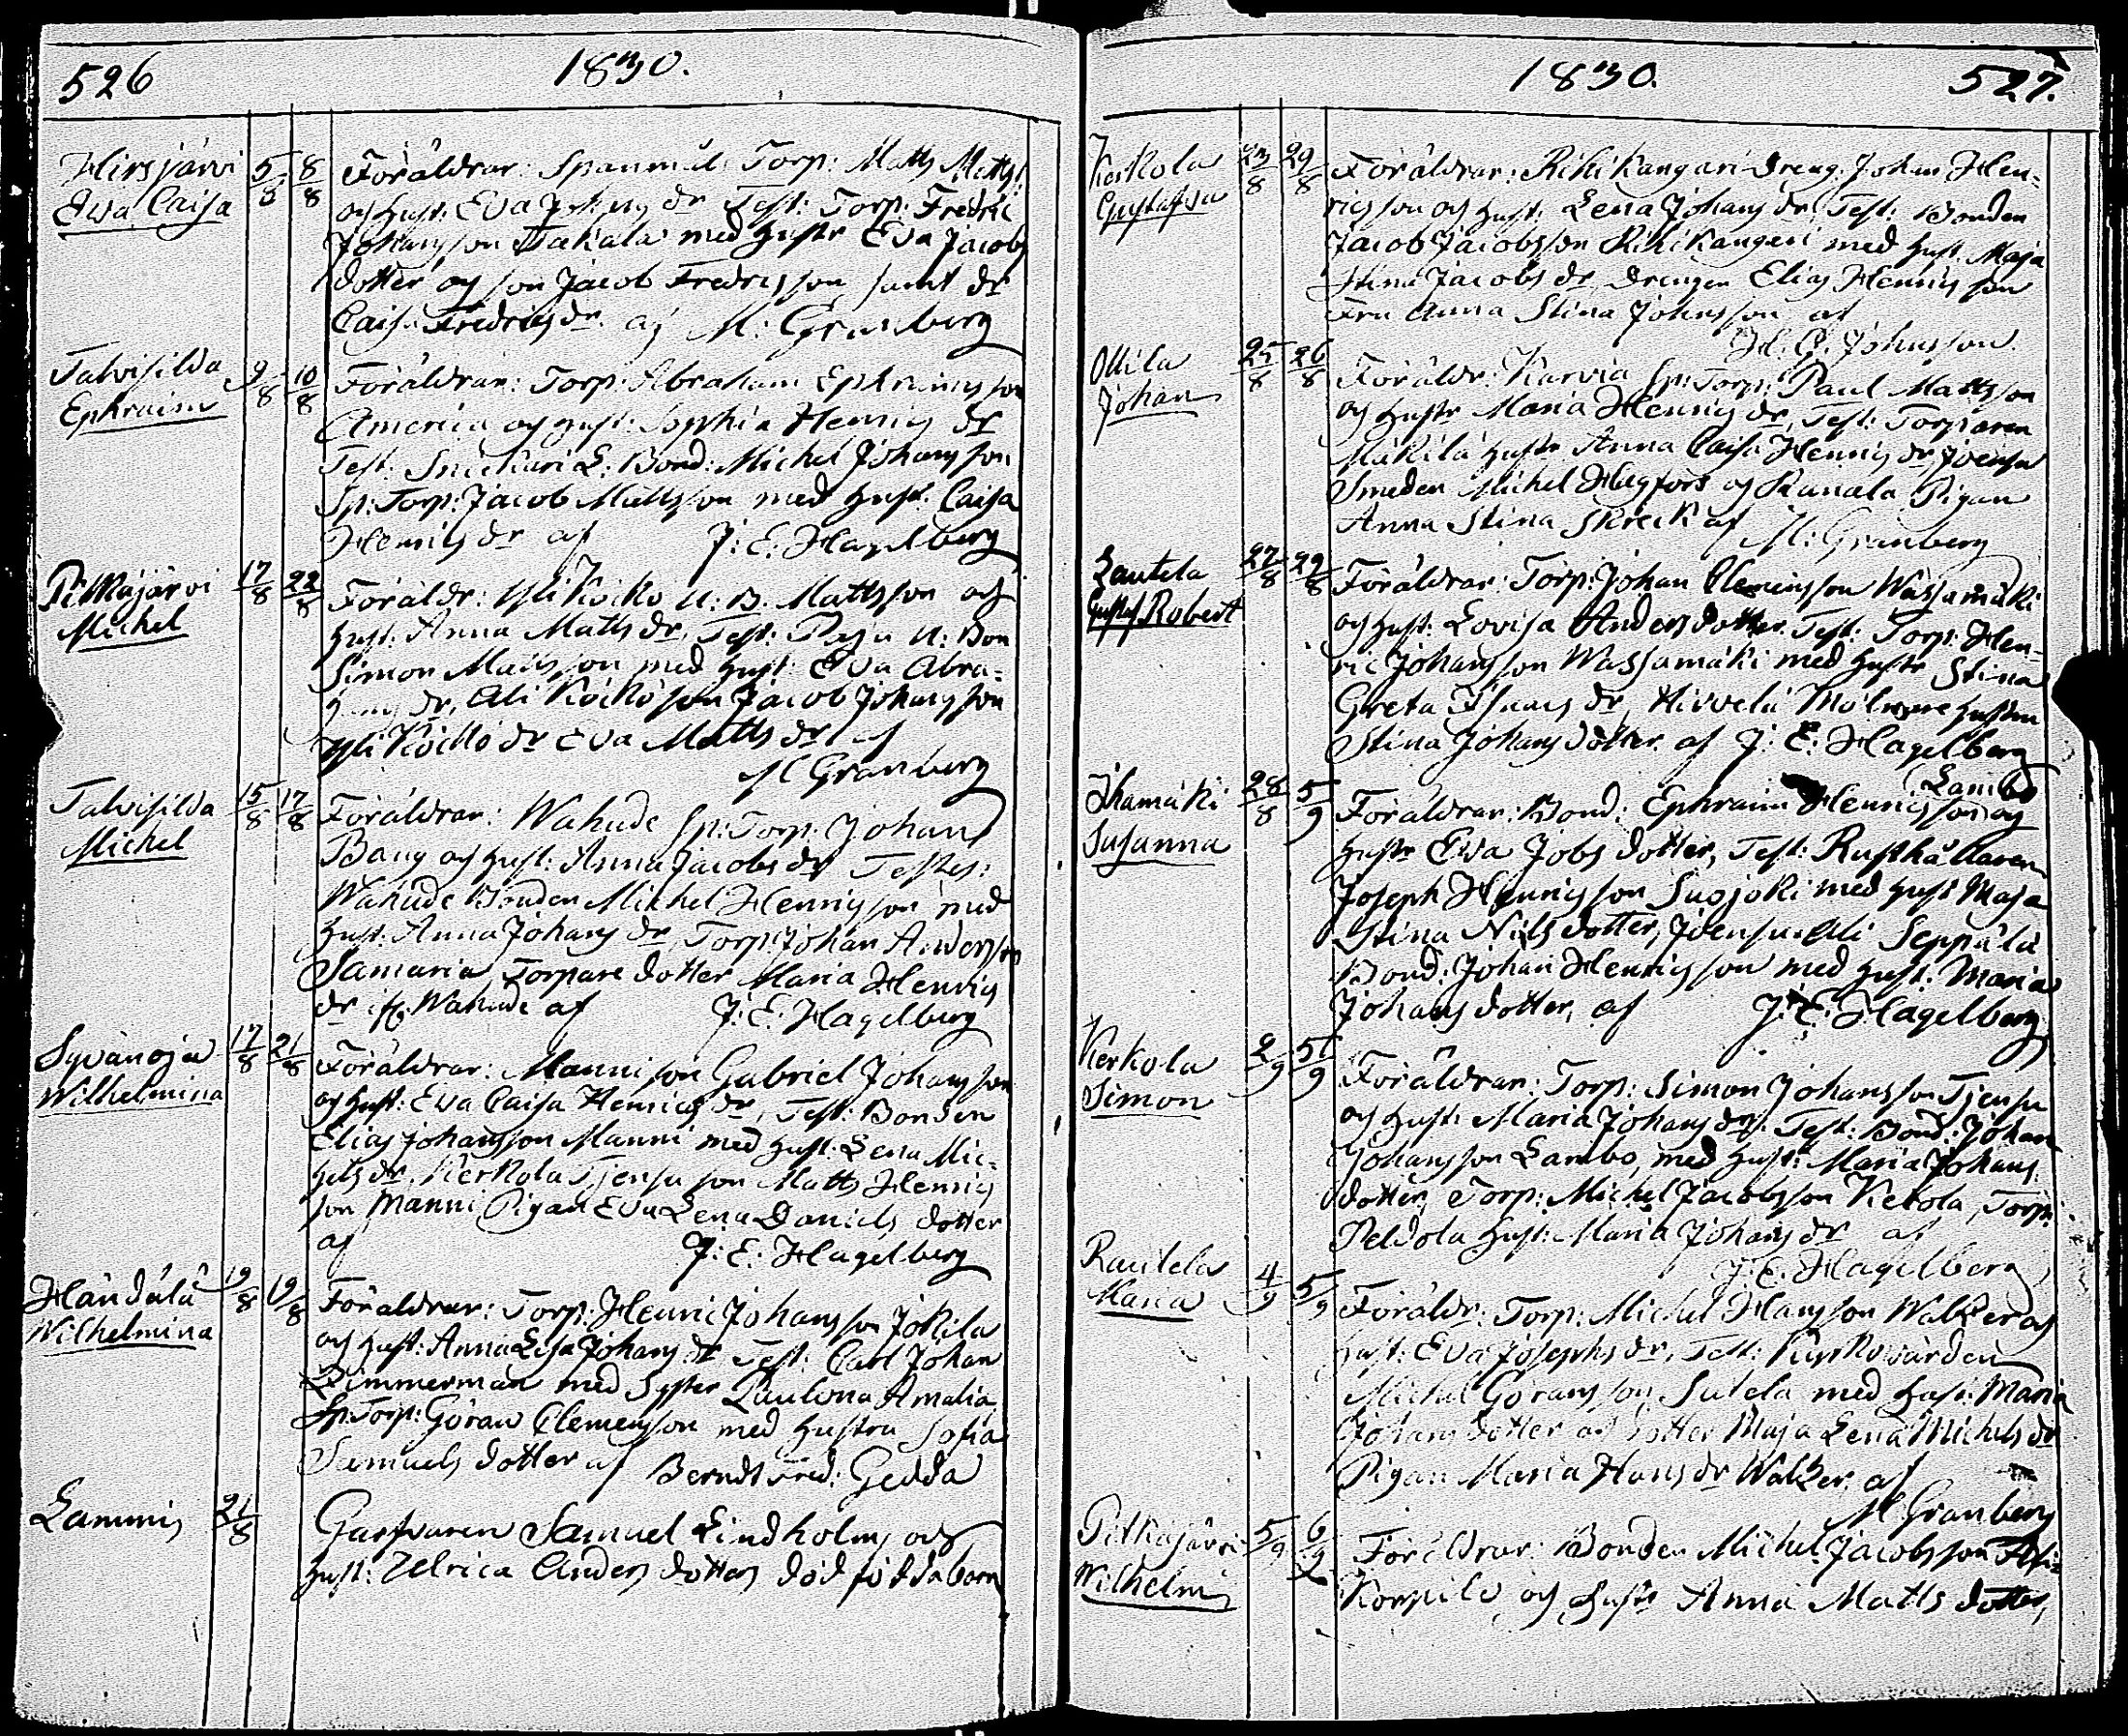 526
1830.
Hirsjärvi 5/8 8/8 Föräldrar: Spanmål: Torp: Matts Matts:
Ewa Caisa og Hust: Eva Johans dr Test: Torp: Fredric
Johansson Takala med Hustr Eva Jacobs
dotter og son Jacob Fredricsson samt dr
Caisa Fredrics dr. af M: Granberg
Talvisilda 9/8 10/8 Föräldrar: Torp: Abraham Ephraimsson
Ephraim America og Hust: Sophia Henrics dr
Test. Snickari L: Bond: Michel Johansson
Sp: Torp: Jacob Mattsson med Hust. Caisa
Henrics dr af J: E: Hagelberg
Pitkäjärvi 17/8 22/8 Föräldr: Yli Köckö U: B. Mattsson og
Michel Hust: Anna Matts dr, Test: U: Bon
Simon Mattsson med Hust Eva Abra=
hams dr, Ali Köckö son Jacob Johansson
Yli Köckö dr Eva Matts dr af
M Granberg
Talvisilda 15/8 17/8 Föräldrar: Wahude Sp: Torp: Johan
Michel Bang og Hust: Anna Jacobs dr Testes:
Wahude Bonden Michel Henricsson med
Hust: Anna Johans dr, Torp: Johan Andersson
Samaria Torpare dotter Maria Henrics
dr ifr. Wahude af J: E: Hagelberg
Syvänoja 17/8 21/8 Föräldrar: Manni son Gabriel Johansson
Wilhelmina og Hust: Eva Caisa Henrics dr, Test: Bonden
Elias Johansson Manni med Hust: Lena Mic=
hels dr. Kerkola Tjensu son Matts Henrics
son Manni Pigan Eva Lena Daniels dotter
af J: E: Hagelberg
Händälä 19/8 19/8 Föräldrar: Torp: Henric Johansson Jokila
Wilhelmina og Hust: Anna Lisa Johans dr Test: Carl Johan
Zimmerman med Syster Paulona Amalia
Sp: Torp: Göran Clemensson med Hustru Sofia
Samuels dotter af Berndt Fred: Gedda
Lammis 21/8 Garfvaren Samuel Lindholms og
Hust: Ulrica Anders dotters död födda barn
1830.
527.
Kerkola 23/8 29/8 Föräldrar: Rihikangari Dreng: Johan Hen=
Gustafva ricsson og Hust: Lena Johans dr, Test: Bonden
Jacob Jacobsson Rihikangeri med Hust. Maja
Stina Jacobs dr Drengen Elias Henricsson
Fru Anna Stina Johnsson af
H: G: Johnsson
Ollila 25/8 26/8 Föräldr: Karvia Sp: Torp: Paul Mattsson
Johan og Hustr Maria Henrics dr, Test: Torparen
Mäkilä Hustr Anna Caisa Henrics dr, Joensu
Smeden Michel Hagfors og Runala Pigan
Anna Stina Skreck af M: Granberg
Lautela 27/8 29/8 Föräldrar: Torp: Johan Clemensson Wassamäki
Gustaf Robert og Hust: Lovisa Anders dotter. Test: Torp: Hen=
ric Johansson Wassamäki med Hustr Stina
Greta Isaacs dr, Hirvelä Mölnare Hustru
Stina Johans dotter af J: E: Hagelberg
Lambo
Ihamäki 28/8 5/9 Föräldrar: Bond: Ephraim Henricsson og
Susanna Hustr Eva Jobs dotter, Test: Rusthållaren
Joseph Henricsson Suojoki med Hust Maja
Stina Nils dotter, Joensu Ali Seppälä
Bond: Johan Henricsson med Hust: Maria
Johans dotter, af J: E: Hagelberg
Kerkola 2/9 5/9 Föräldrar: Torp: Simon Johansson Tjensu
Simon og Hust: Maria Johans dr. Test: Bond: Johan
Johansson Lambo, med Hust: Maria Johans
dotter, Torp: Michel Jacobsson Ketola, Torp:
Peldola Hust: Maria Johans dr af
J: E: Hagelberg
Rautela 4/9 5/9 Föräldr: Torp: Michel Hansson Walker og
Maria Hust: Eva Josephs dr, Test: Kyrkovärden
Michel Göransson Sutela med Hust: Maria
Johans dotter og dotter Maja Lena Michels dr
Pigan Maria Hans dr Walker af
M Granberg
Pitkäjärvi 5/9 6/9 Föräldrar: Bonden Michel Jacobsson
Wilhelmi Korpilo og Hustr Anna Matts dotter,